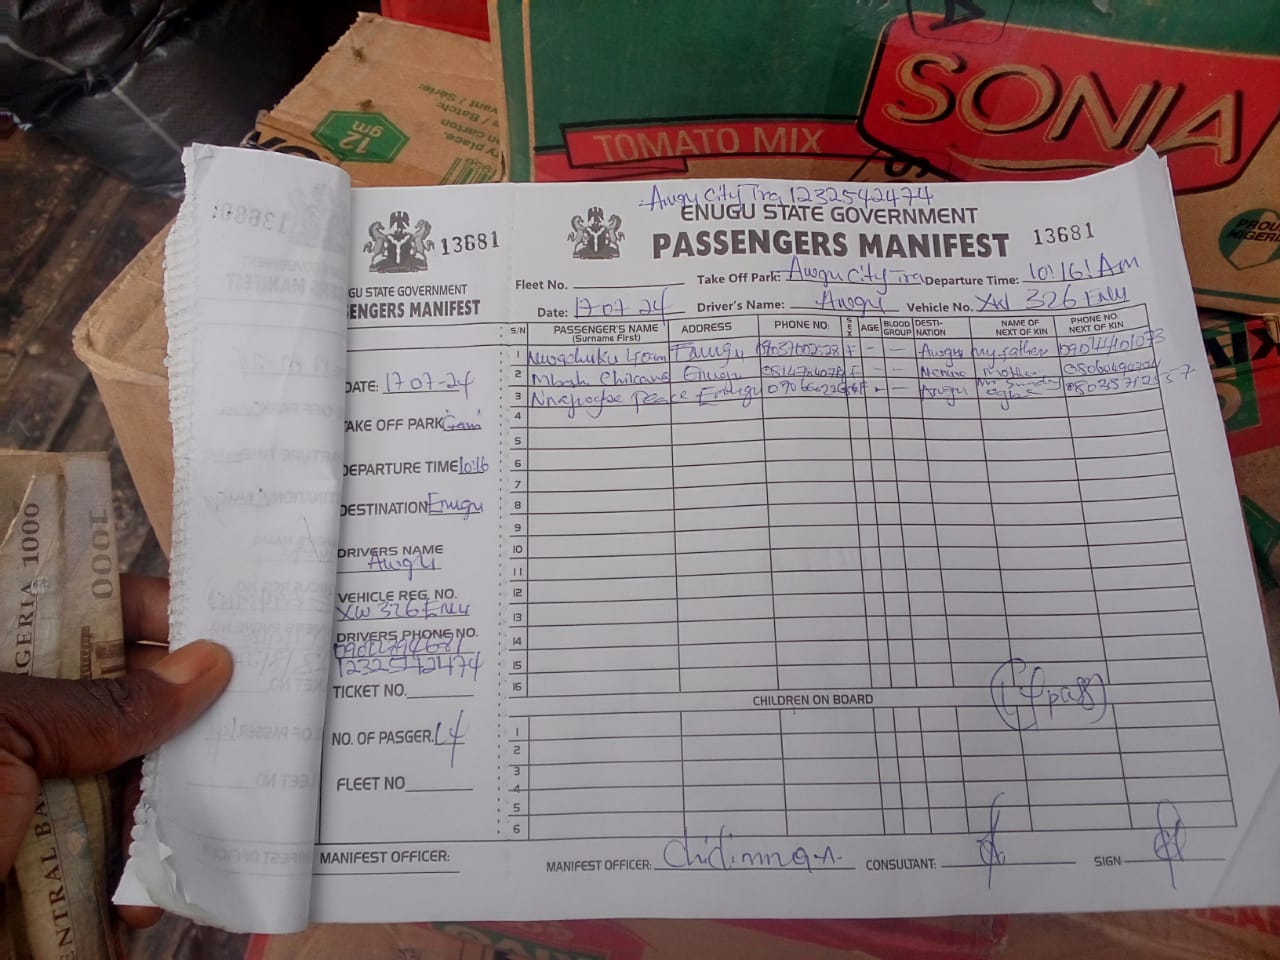 SONIA
TOMATO MIX
12
gm
NIGERIA 1000
1000
CENTRAL BA
13681
GU STATE GOVERNMENT
ENGERS MANIFEST
DATE: 17 07-24
TAKE OFF PARK
DEPARTURE TIME 10:16
DESTINATION Enugu
DRIVERS NAME
Awgu
VEHICLE REG. NO.
XW 326 ENU
DRIVERS PHONE NO.
1232542474
TICKET NO.
NO. OF PASGER. 14
FLEET NO
MANIFEST OFFICER:
Awgu City Tra 1232542474
ENUGU STATE GOVERNMENT
PASSENGERS MANIFEST 13681
Fleet No. Take Off Park: Awgu City Tra Departure Time: 10:16 AM
Date: 17 07 24 Driver's Name: Awgu Vehicle No. XW 326 ENU
S/N PASSENGER'S NAME (Surname First) ADDRESS PHONE NO: SEX AGE BLOOD GROUP DESTI-NATION NAME OF NEXT OF KIN PHONE NO: NEXT OF KIN
1 Enugu F - - Awgu My father 09044401073
2 Mbah Enugu F - - mother
3 Peace Enugu F - - Awgu Mr Sunday 08035712557
4
5
6
7
8
9
10
11
12
13
14
15
16
14 pass
CHILDREN ON BOARD
1
2
3
4
5
6
MANIFEST OFFICER: Chidimma CONSULTANT: SIGN